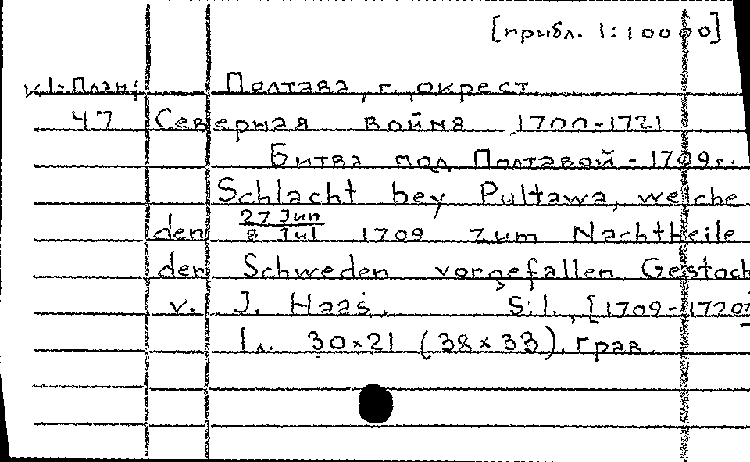 [прибл. 1:10000]
К1-План; Полтава, г., окрест.
47 Северная война 1700-1721
Битва под Полтавой - 1709г.
Schlacht bey Pultawa, welche
den 27 Jun / 8 Jul 1709 zum Nachtheile
der Schweden vorgefallen. Gestoch
v. J. Haas. S.l., [1709-1720?]
1л. 30x21 (38x33). грав.